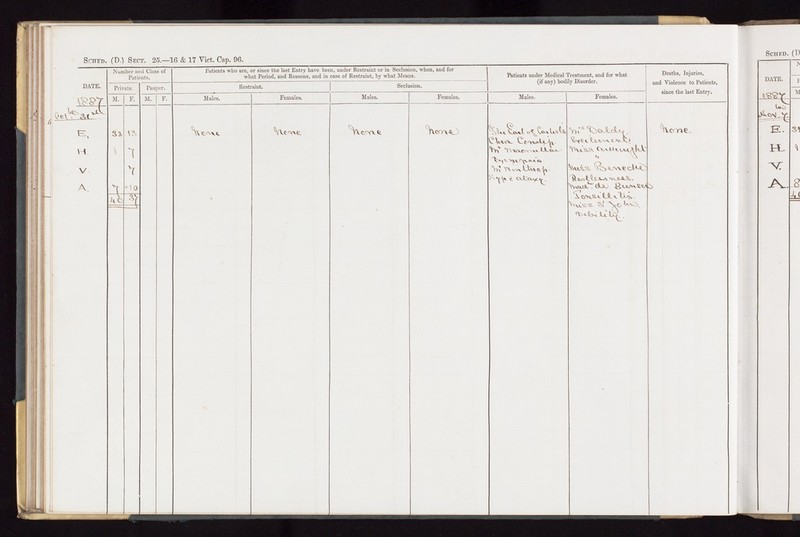 SCHED. (D.) SECT. 25.—16 & 17 Vict. Cap. 96.
DATE.
Number and Class of Patients.
Private.
Pauper.
M. F. M. F.
Patients who are, or since the last Entry have been, under Restraint or in Seclusion, when, and for what Period, and Reasons, and in case of Restraint, by what Means.
Restraint.
Seclusion.
Males. Females. Males. Females.
Patients under Medical Treatment, and for what (if any) bodily Disorder.
Males. Females.
Deaths, Injuries, and Violence to Patients, since the last Entry.
1887
E. 32 13 None None None None The Earl of Carlisle Mrs Daldy None
Excitement
H. 1 7 Mr Miss
Dyspepsia "
V. 7 Mr Winthrop Miss Benecke
Restlessness.
A. 7 10 Mad. de Bunsen
40 37 Tonsillitis.
Miss St John
Debility
SCHED. (D
DATE.
1887
Nov. 7
E.
H.
V.
A.